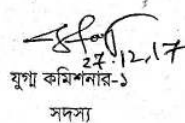 27.12.17
যুগ্ম কমিশনার-১
সদস্য